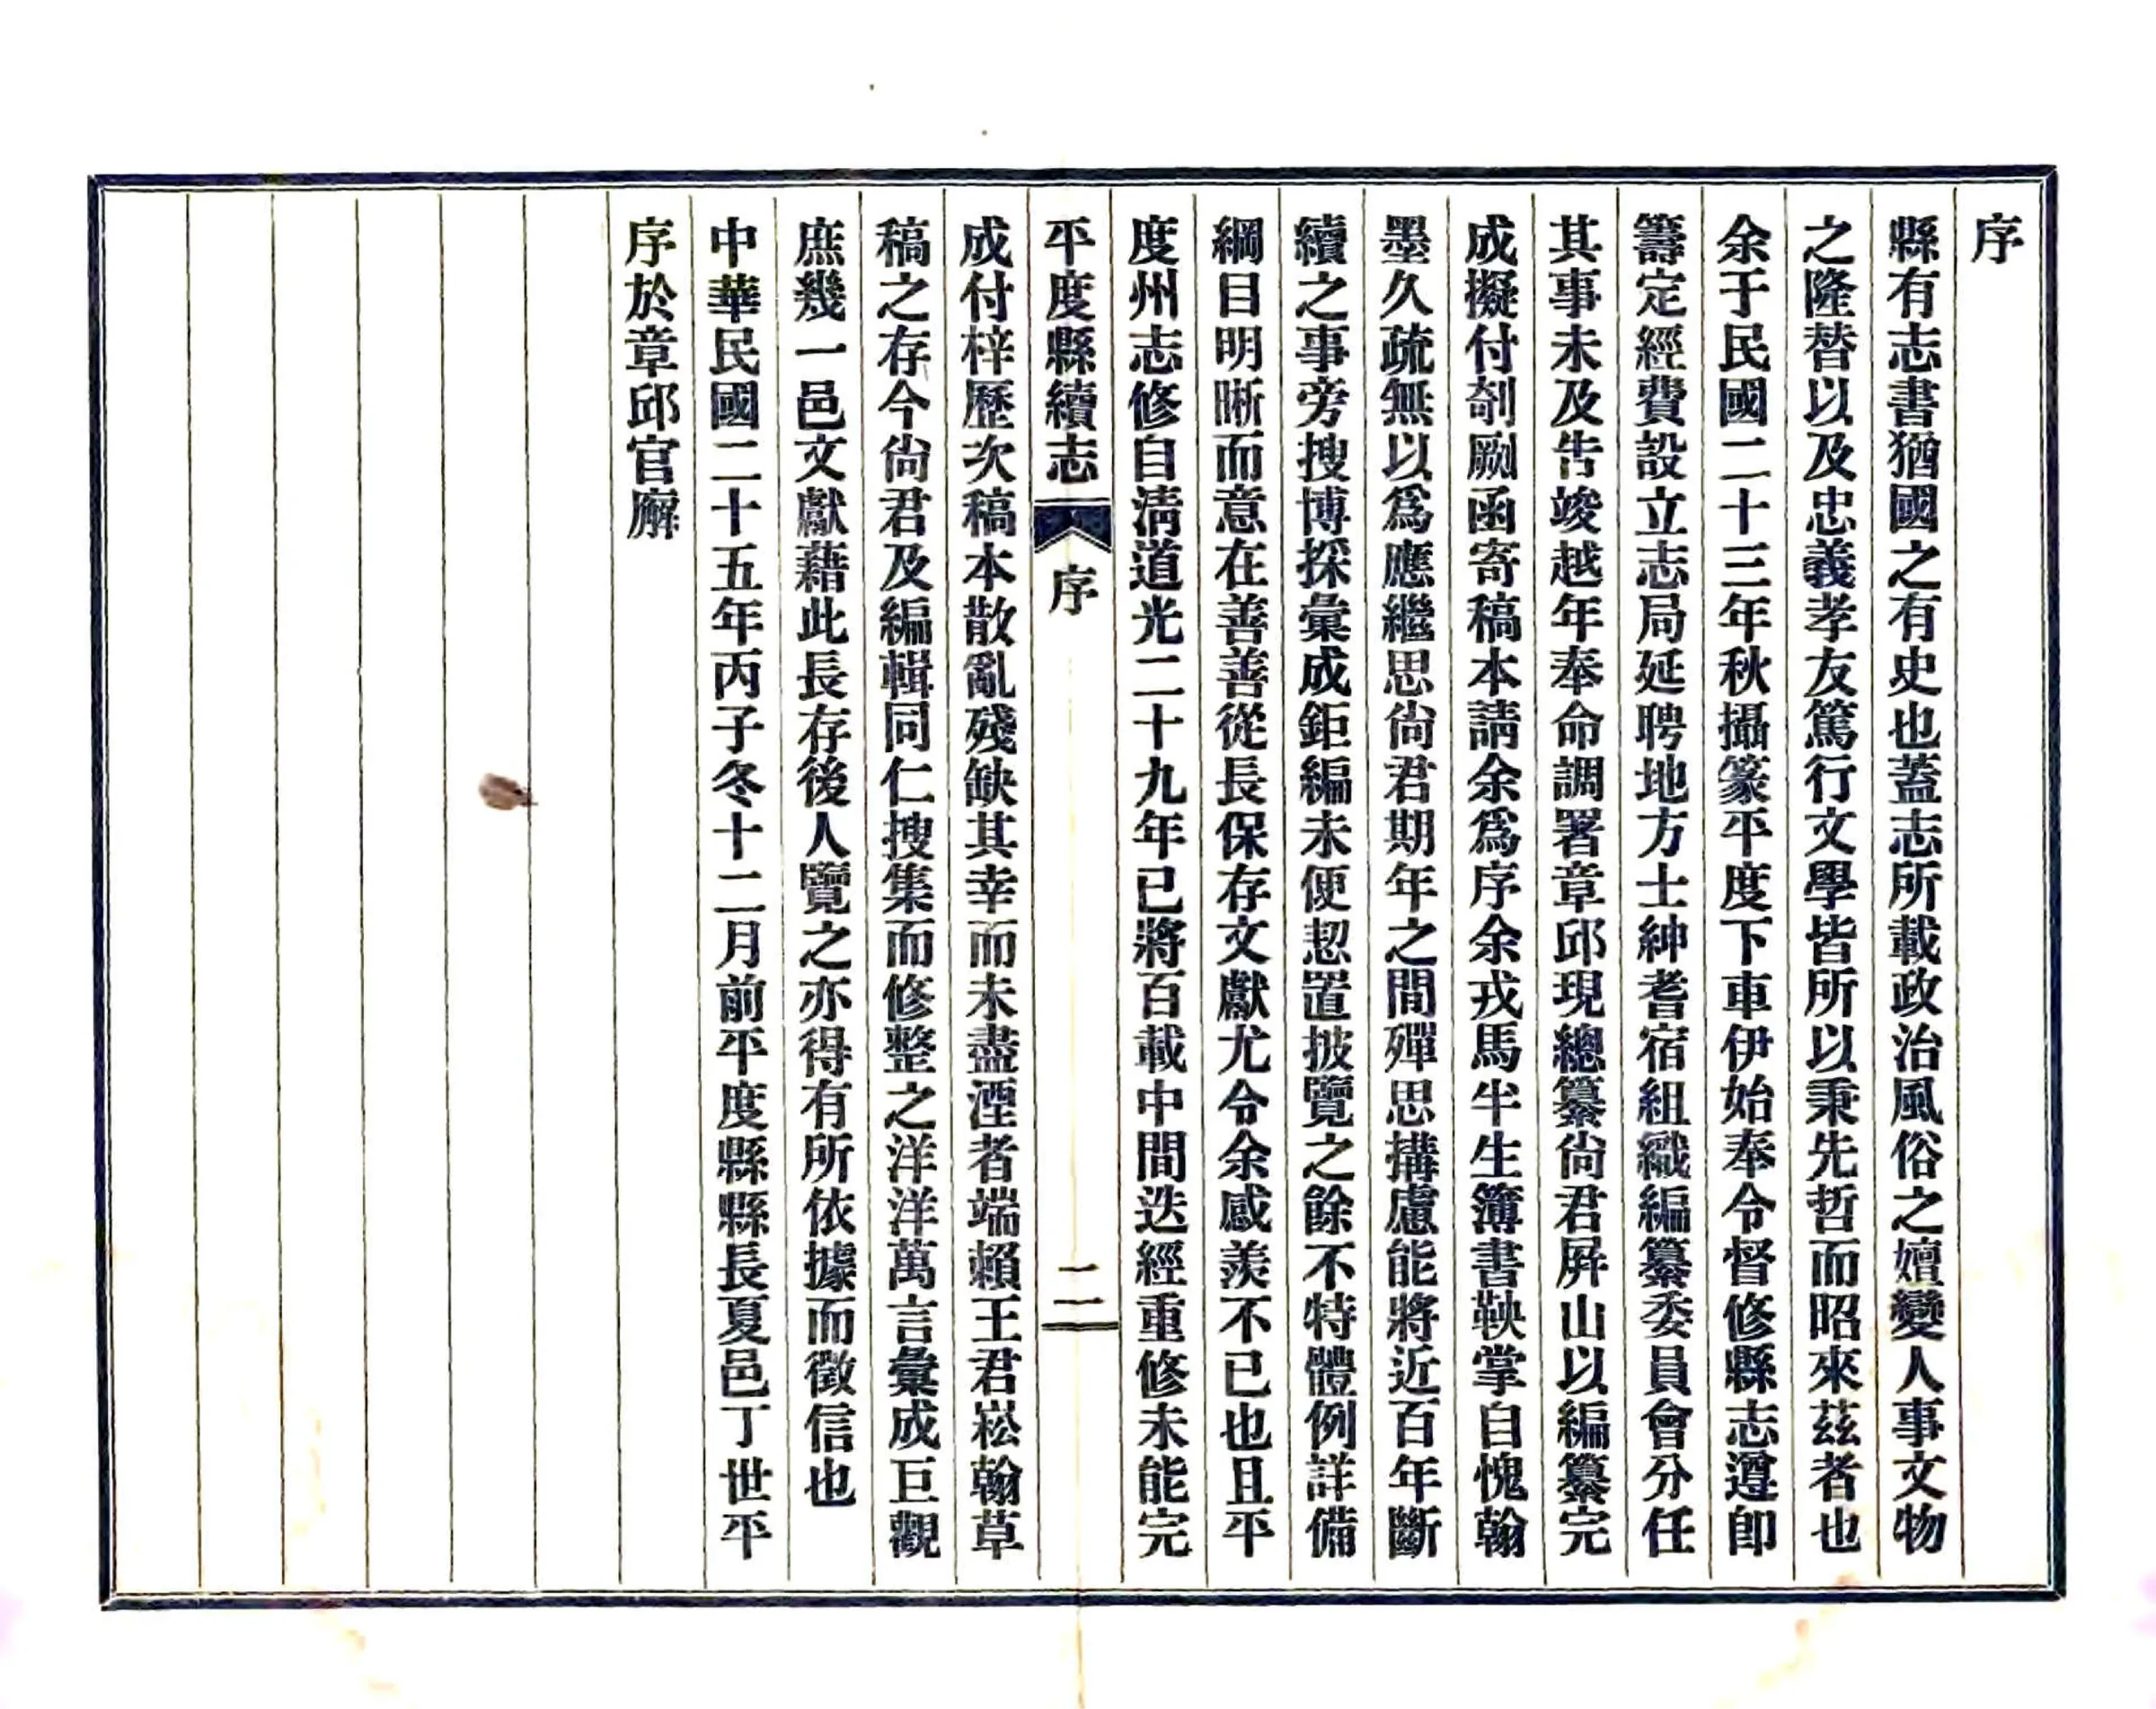 序
縣有志書猶國之有史也蓋志所載政治風俗之嬗變人事文物
之隆替以及忠義孝友篤行文學皆所以秉先哲而昭來茲者也
余于民國二十三年秋攝篆平度下車伊始奉令督修縣志遵卽
籌定經費設立志局延聘地方士紳耆宿組織編纂委員會分任
其事未及告竣越年奉命調署章邱現總纂尙君屛山以編纂完
成擬付剞劂函寄稿本請余爲序余戎馬半生簿書鞅掌自愧翰
墨久疏無以爲應繼思尙君期年之間殫思搆慮能將近百年斷
續之事旁搜博採彙成鉅編未便恝置披覽之餘不特體例詳備
綱目明晰而意在善善從長保存文獻尤令余感羨不已也且平
度州志修自淸道光二十九年已將百載中間迭經重修未能完
平度縣續志 序 二
成付梓歷次稿本散亂殘缺其幸而未盡湮者端賴王君崧翰草
稿之存今尙君及編輯同仁搜集而修整之洋洋萬言彙成巨觀
庶幾一邑文獻藉此長存後人覽之亦得有所依據而徵信也
中華民國二十五年丙子冬十二月前平度縣縣長夏邑丁世平
序於章邱官廨